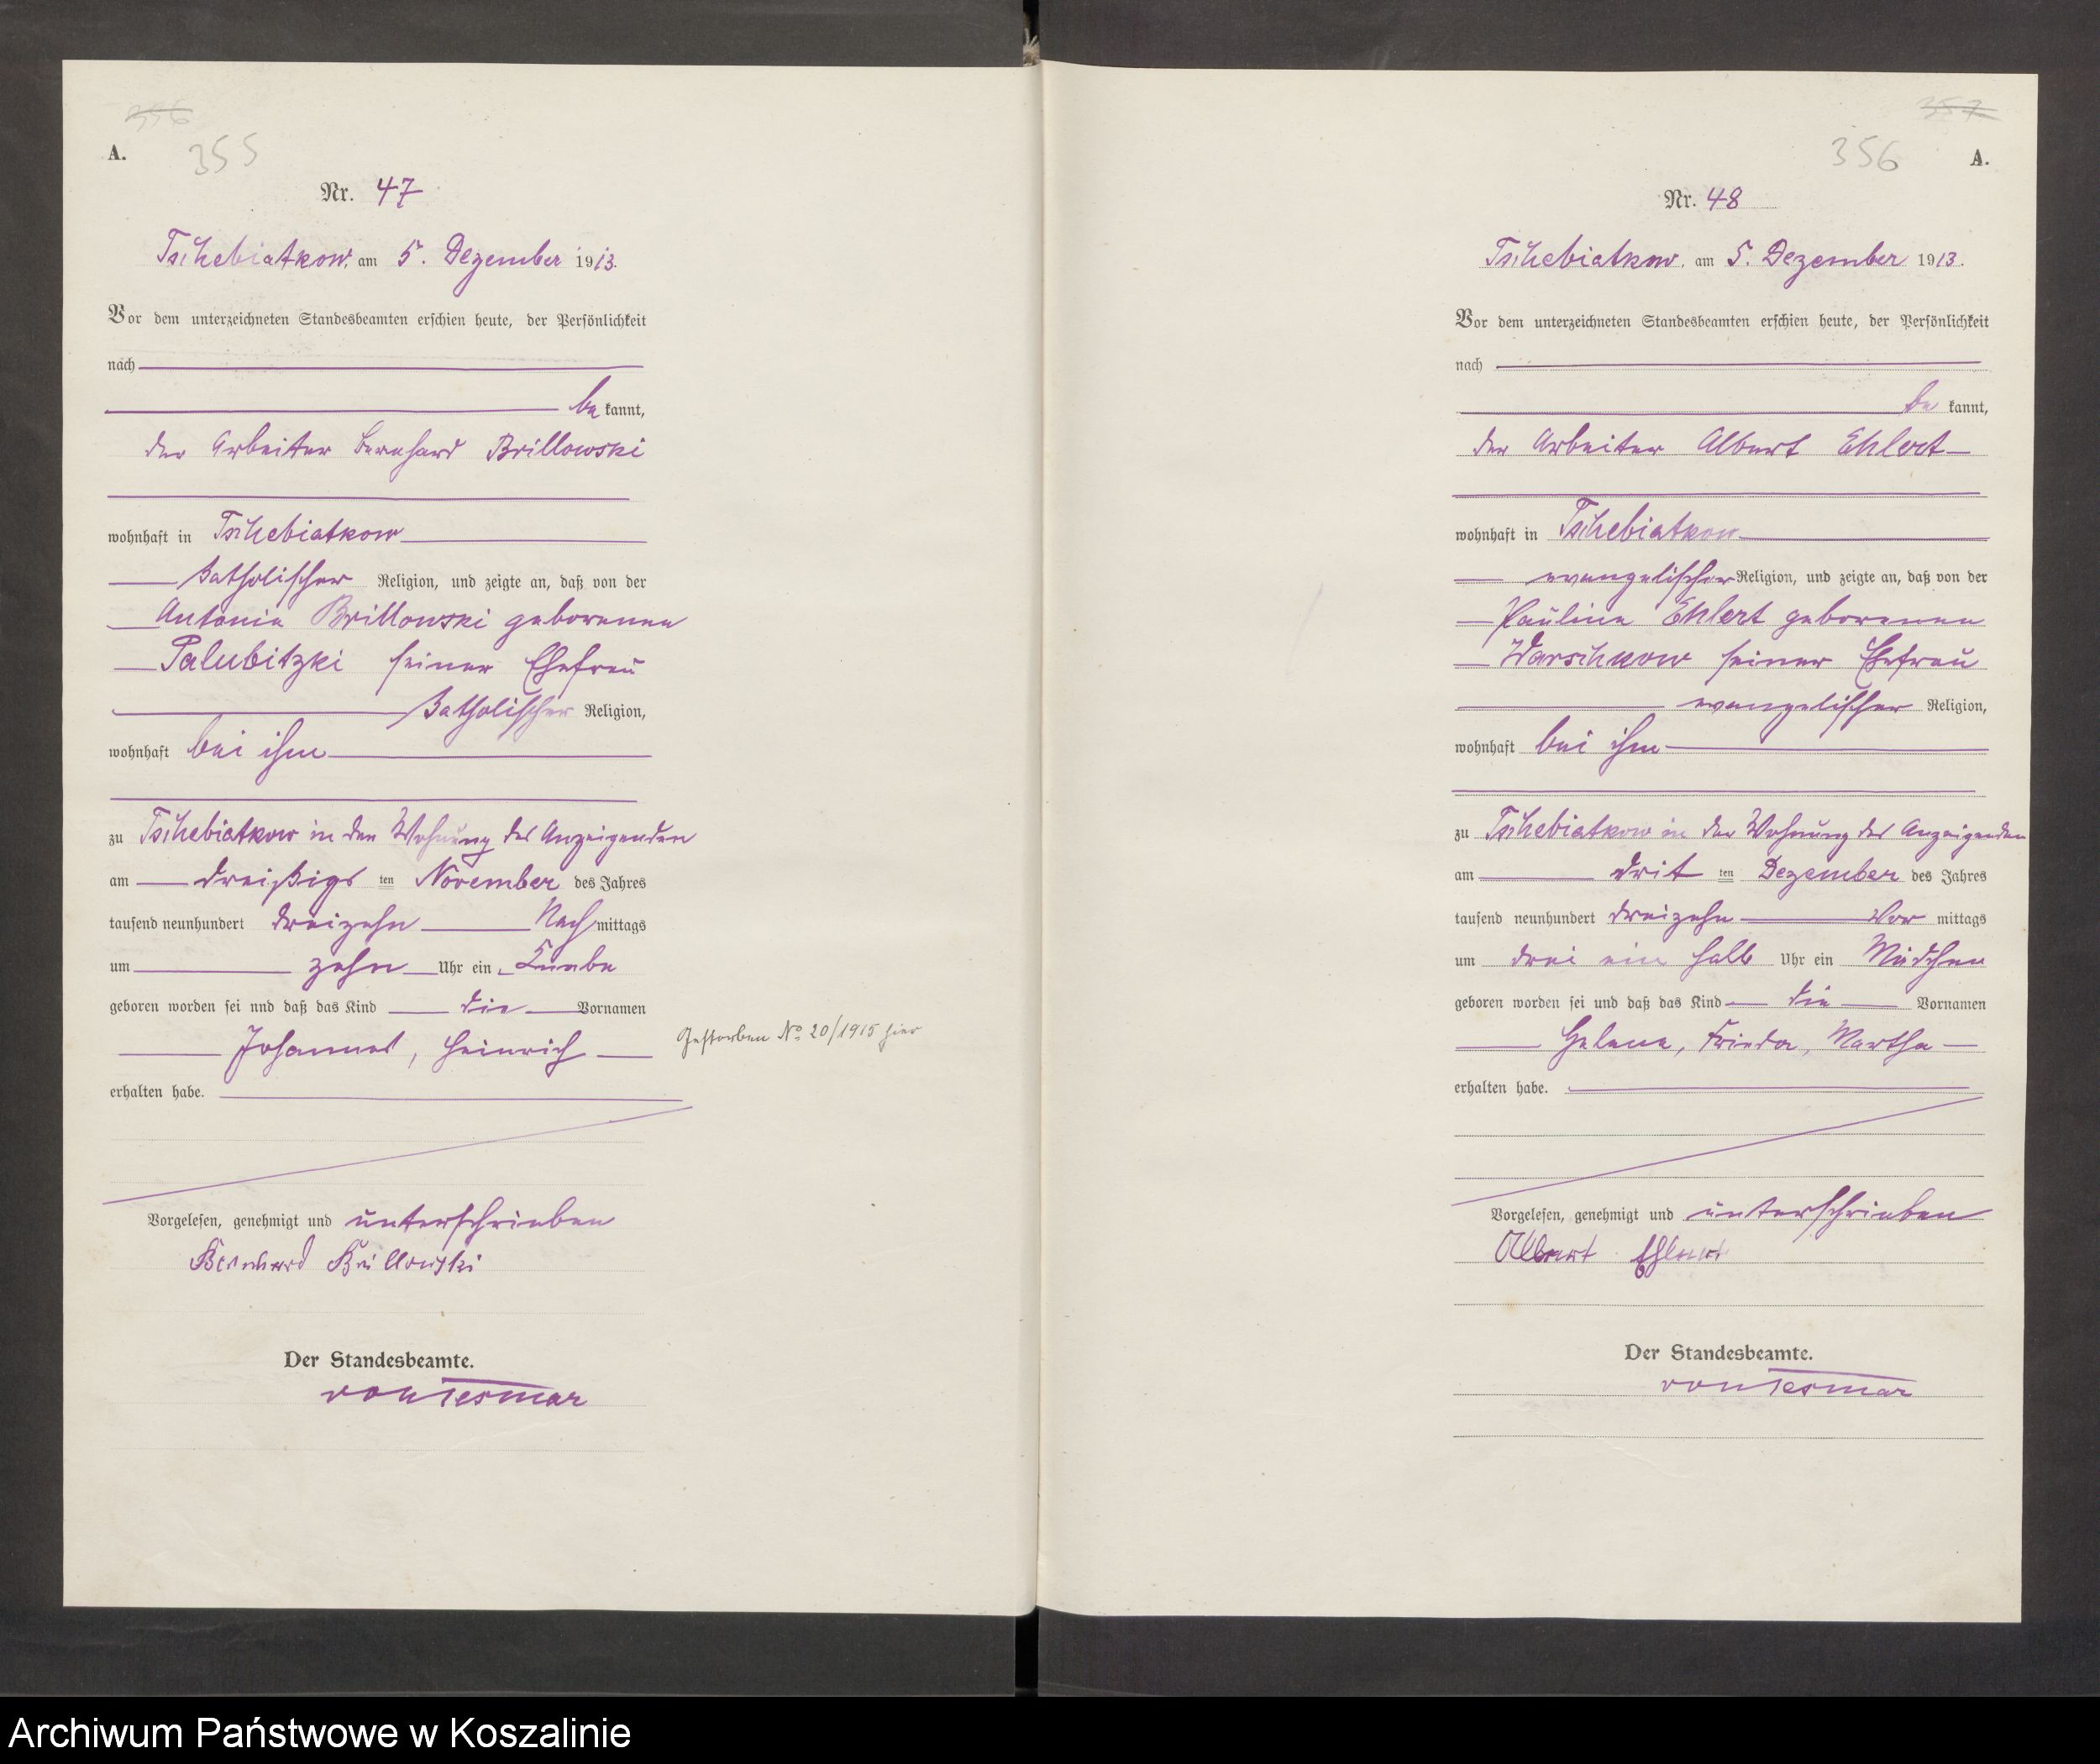 356
A.
355
Nr. 47
Tschebiatkow, am 5. Dezember 1913.
Vor dem unterzeichneten Standesbeamten erschien heute, der Persönlichkeit
nach
be kannt,
der Arbeiter Bernhard Brillowski
wohnhaft in Tschebiatkow
katholischer Religion, und zeigte an, daß von der
Antonie Brillowski geborenen
Palubitzki seiner Ehefrau
katholischer Religion,
wohnhaft bei ihm
zu Tschebiatkow in der Wohnung des Anzeigenden
am dreißigs ten November des Jahres
tausend neunhundert dreizehn Nach mittags
um zehn Uhr ein Knabe
geboren worden sei und daß das Kind die Vornamen
Johannes, Heinrich
Gestorben No 20/1915 hier
erhalten habe.
Vorgelesen, genehmigt und unterschrieben
Bernhard Brillowski
Der Standesbeamte.
von Tesmar
357
356 A.
Nr. 48
Tschebiatkow, am 5. Dezember 1913.
Vor dem unterzeichneten Standesbeamten erschien heute, der Persönlichkeit
nach
be kannt,
der Arbeiter Albert Ehlert
wohnhaft in Tschebiatkow
evangelischer Religion, und zeigte an, daß von der
Pauline Ehlert geborenen
Warschkow seiner Ehefrau
evangelischer Religion,
wohnhaft bei ihm
zu Tschebiatkow in der Wohnung des Anzeigenden
am drit ten Dezember des Jahres
tausend neunhundert dreizehn Vor mittags
um drei ein halb Uhr ein Mädchen
geboren worden sei und daß das Kind die Vornamen
Helene, Frieda, Martha
erhalten habe.
Vorgelesen, genehmigt und unterschrieben
Albert Ehlert
Der Standesbeamte.
von Tesmar
Archiwum Państwowe w Koszalinie